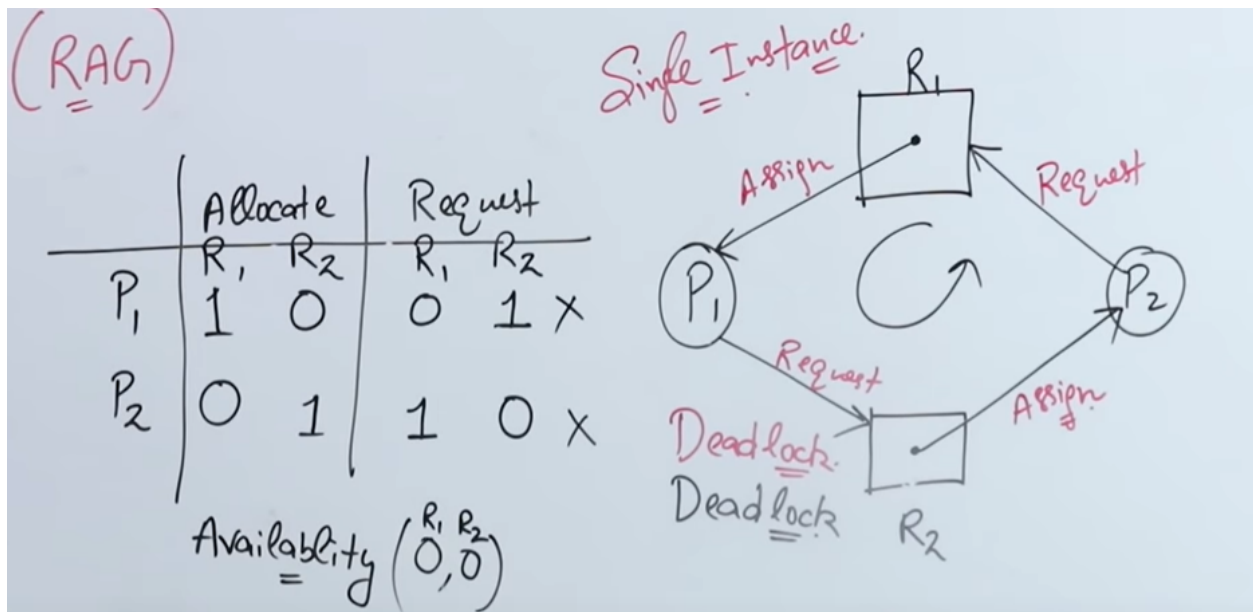 (RAG)
Single Instance.
Allocate Request
R1 R2 R1 R2
P1 1 0 0 1 x
P2 0 1 1 0 x
Availablity (0,0)
R1 R2
R1
Assign
Request
P1
P2
Request
Assign.
Deadlock.
Deadlock
R2